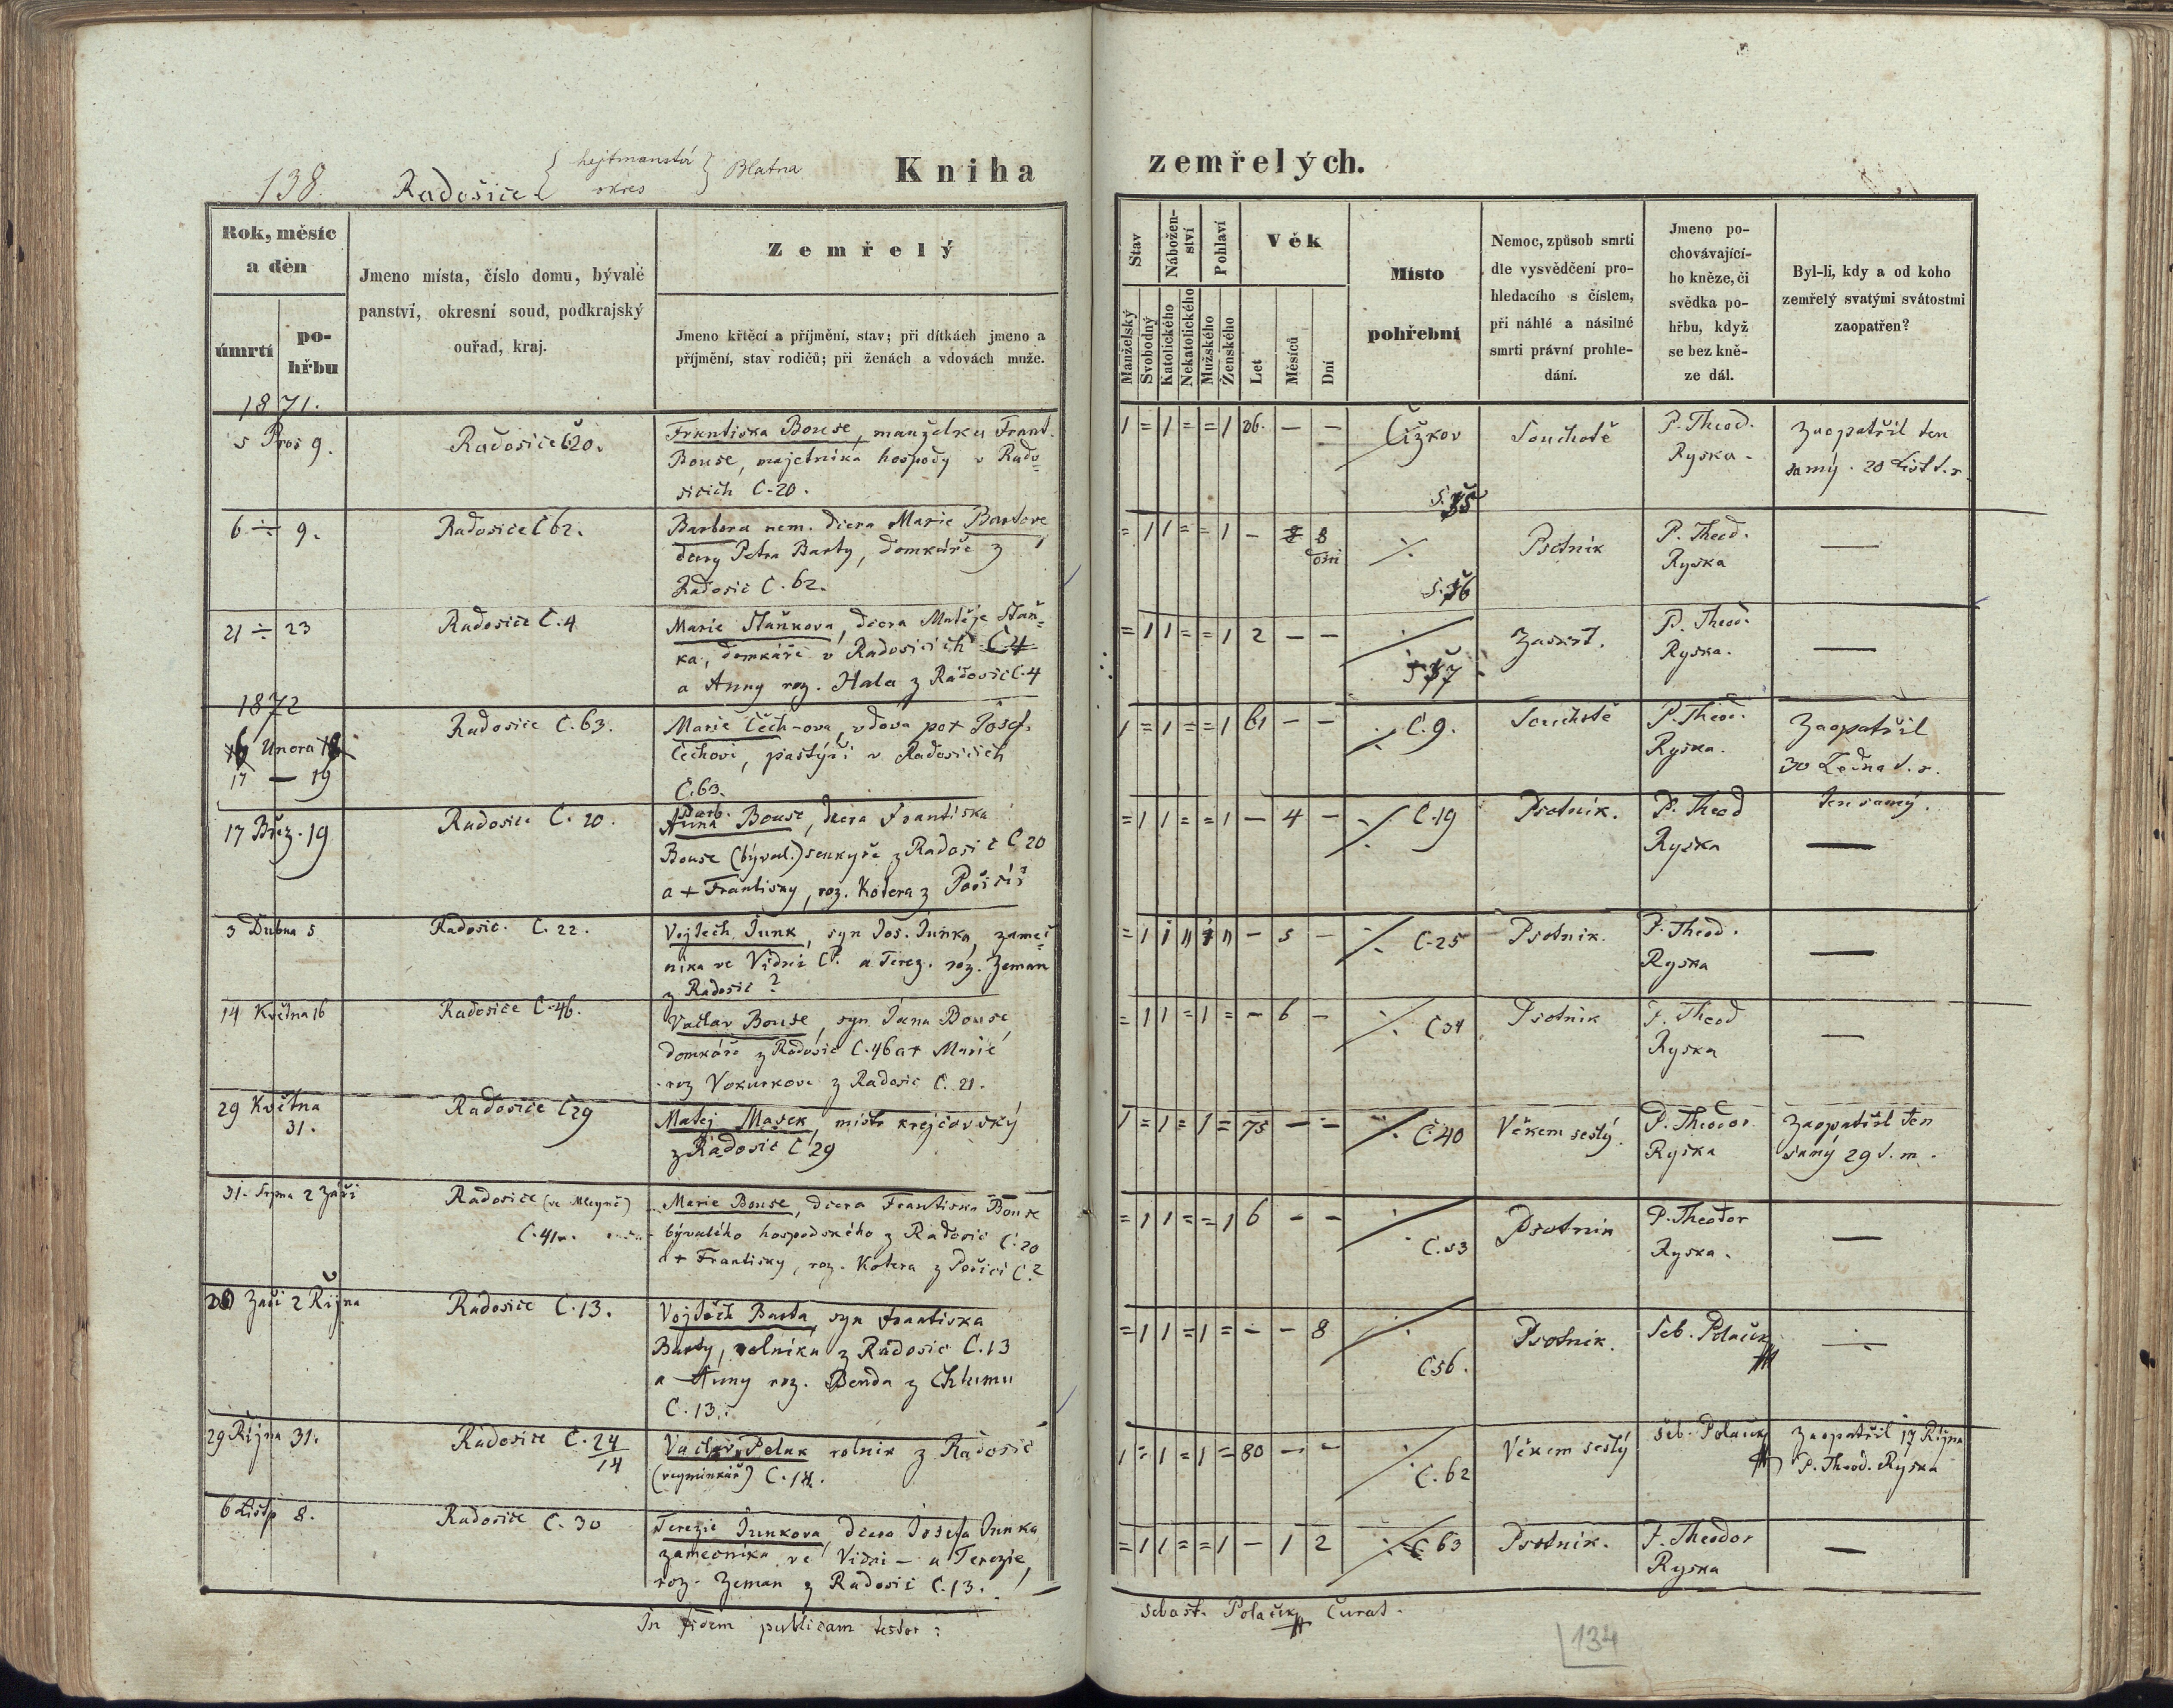 138.
Radošice { hejtmanství okres } Blatna
Kniha zemřelých.
Rok, měsíc
a den
úmrtí
po-
hřbu
Jmeno místa, číslo domu, bývalé
panství, okresní soud, podkrajský
ouřad, kraj.
Zemřelý
Jmeno křtěcí a příjmění, stav; při dítkách jmeno a
příjmění, stav rodičů; při ženách a vdovách muže.
Stav
Manželský
Svobodný
Nábožen-
ství
Katolického
Nekatolického
Pohlaví
Mužského
Ženského
Věk
Let
Měsíců
Dní
Místo
pohřební
Nemoc, způsob smrti
dle vysvědčení pro-
hledacího s číslem,
při náhlé a násilné
smrti právní prohle-
dání.
Jmeno po-
chovávající-
ho kněze, či
svědka po-
hřbu, když
se bez kně-
ze dál.
Byl-li, kdy a od koho
zemřelý svatými svátostmi
zaopatřen?
1871.
5 Pros 9.
Radosice č 20.
Frantiska Bouse, manželka Frant.
Bouse, majetnika hospody v Rado-
sicich C. 20.
1 = 1 = = 1 26. — —
Čížkov
Souchotě
P. Theod.
Ryska.
Zaopatřil ten
samý. 20 List. t. r.
6 ÷ 9.
Radosice č 62.
Barbora nem. dcera Marie Bartove
dcery Petra Barty, domkáře z
Radosic C. 62.
= 1 1 = = 1 — 8 dni
Psotnik
P. Theod.
Ryska
—
21 ÷ 23
Radosice C. 4
Marie Staňkova, dcera Matěje Staň-
ka, domkáře v Radosicich C 4
a Anny roz. Hala z Radosic C. 4
= 1 1 = = 1 2 — —
Zaskrt.
P. Theod.
Ryska.
—
1872
Unora
17 — 19
Radosice C. 63.
Marie Čech-ova, vdova po + Josef.
Čechovi, pastýři v Radosicich
C. 63.
1 = 1 = = 1 61 — —
C. 9.
Souchotě
P. Theod.
Ryska.
Zaopatřil
30 Ledna t. r.
ten samý.
17 Břez. 19
Radosice C. 20.
Barb.
Anna Bouse, dcera Frantiska
Bouse (býval.) senkyře z Radosic C 20
a + Frantisky, roz. Kotera z Pořící
= 1 1 = = 1 — 4 —
C. 19
Psotnik.
P. Theod
Ryska
—
3 Dubna 5
Radosic. C. 22.
Vojtech Junk, syn Jos. Junka, zameč-
nika ve Vidni C?. a Terez. roz. Zeman
z Radosic ?
— 5 —
C. 25
Psotnik.
P. Theod.
Ryska
—
14 Května 16
Radosice C. 46.
Vaclav Bouse, syn Jana Bouse,
domkáře z Radosic C. 46 a + Marie
roz Vokurkove z Radosic C. 21.
= 1 1 = 1 = — 6 —
C 34
Psotnik
P. Theod
Ryska
—
29 Května
31.
Radosice C 29
Matej Masek, mistr krejčovský
z Radosic C 29
1 = 1 = 1 = 75 — —
C. 40
Věkem sestý.
P. Theodor
Ryska
Zaopatřil ten
samý 29 t. m.
31. Srpna 2 Září
Radosice (ve Mlegně)
C. 41
Marie Bouse, dcera Frantiska Bouse
bývalého hospodského z Radosic C. 20
a + Frantisky, roz. Kotera z Pořici C. ?
= 1 1 = = 1 6 — —
C. 53
Psotnik
P. Theodor
Ryska.
—
Září 2 Října
Radosice C. 13.
Vojtěch Barta, syn Frantiska
Barty, rolnika z Radosic C. 13
a Anny roz. Benda z Chlumu
C. 13.
= 1 1 = 1 = — — 8
C 56.
Psotnik.
Seb. Polaček
÷
29 Října 31.
Radosice C. 24
14
Vaclav Polak rolnik z Radosic
(vejminkář) C. 14.
1 = 1 = 1 = 80 — —
C. 62
Věkem sestý
Seb. Polaček
Zaopatřil 17 Října
P. Theod. Ryska
6 Listp 8.
Radosice C. 30
Terezie Junkova, dcera Josefa Junka
zamecnika ve Vidni — a Terezie,
roz. Zeman z Radosic C. 13.
= 1 1 = = 1 — 1 2
C 63
Psotnik.
P. Theodor
Ryska
—
In fidem publicam testor:
Sebast. Polaček Curat.
134